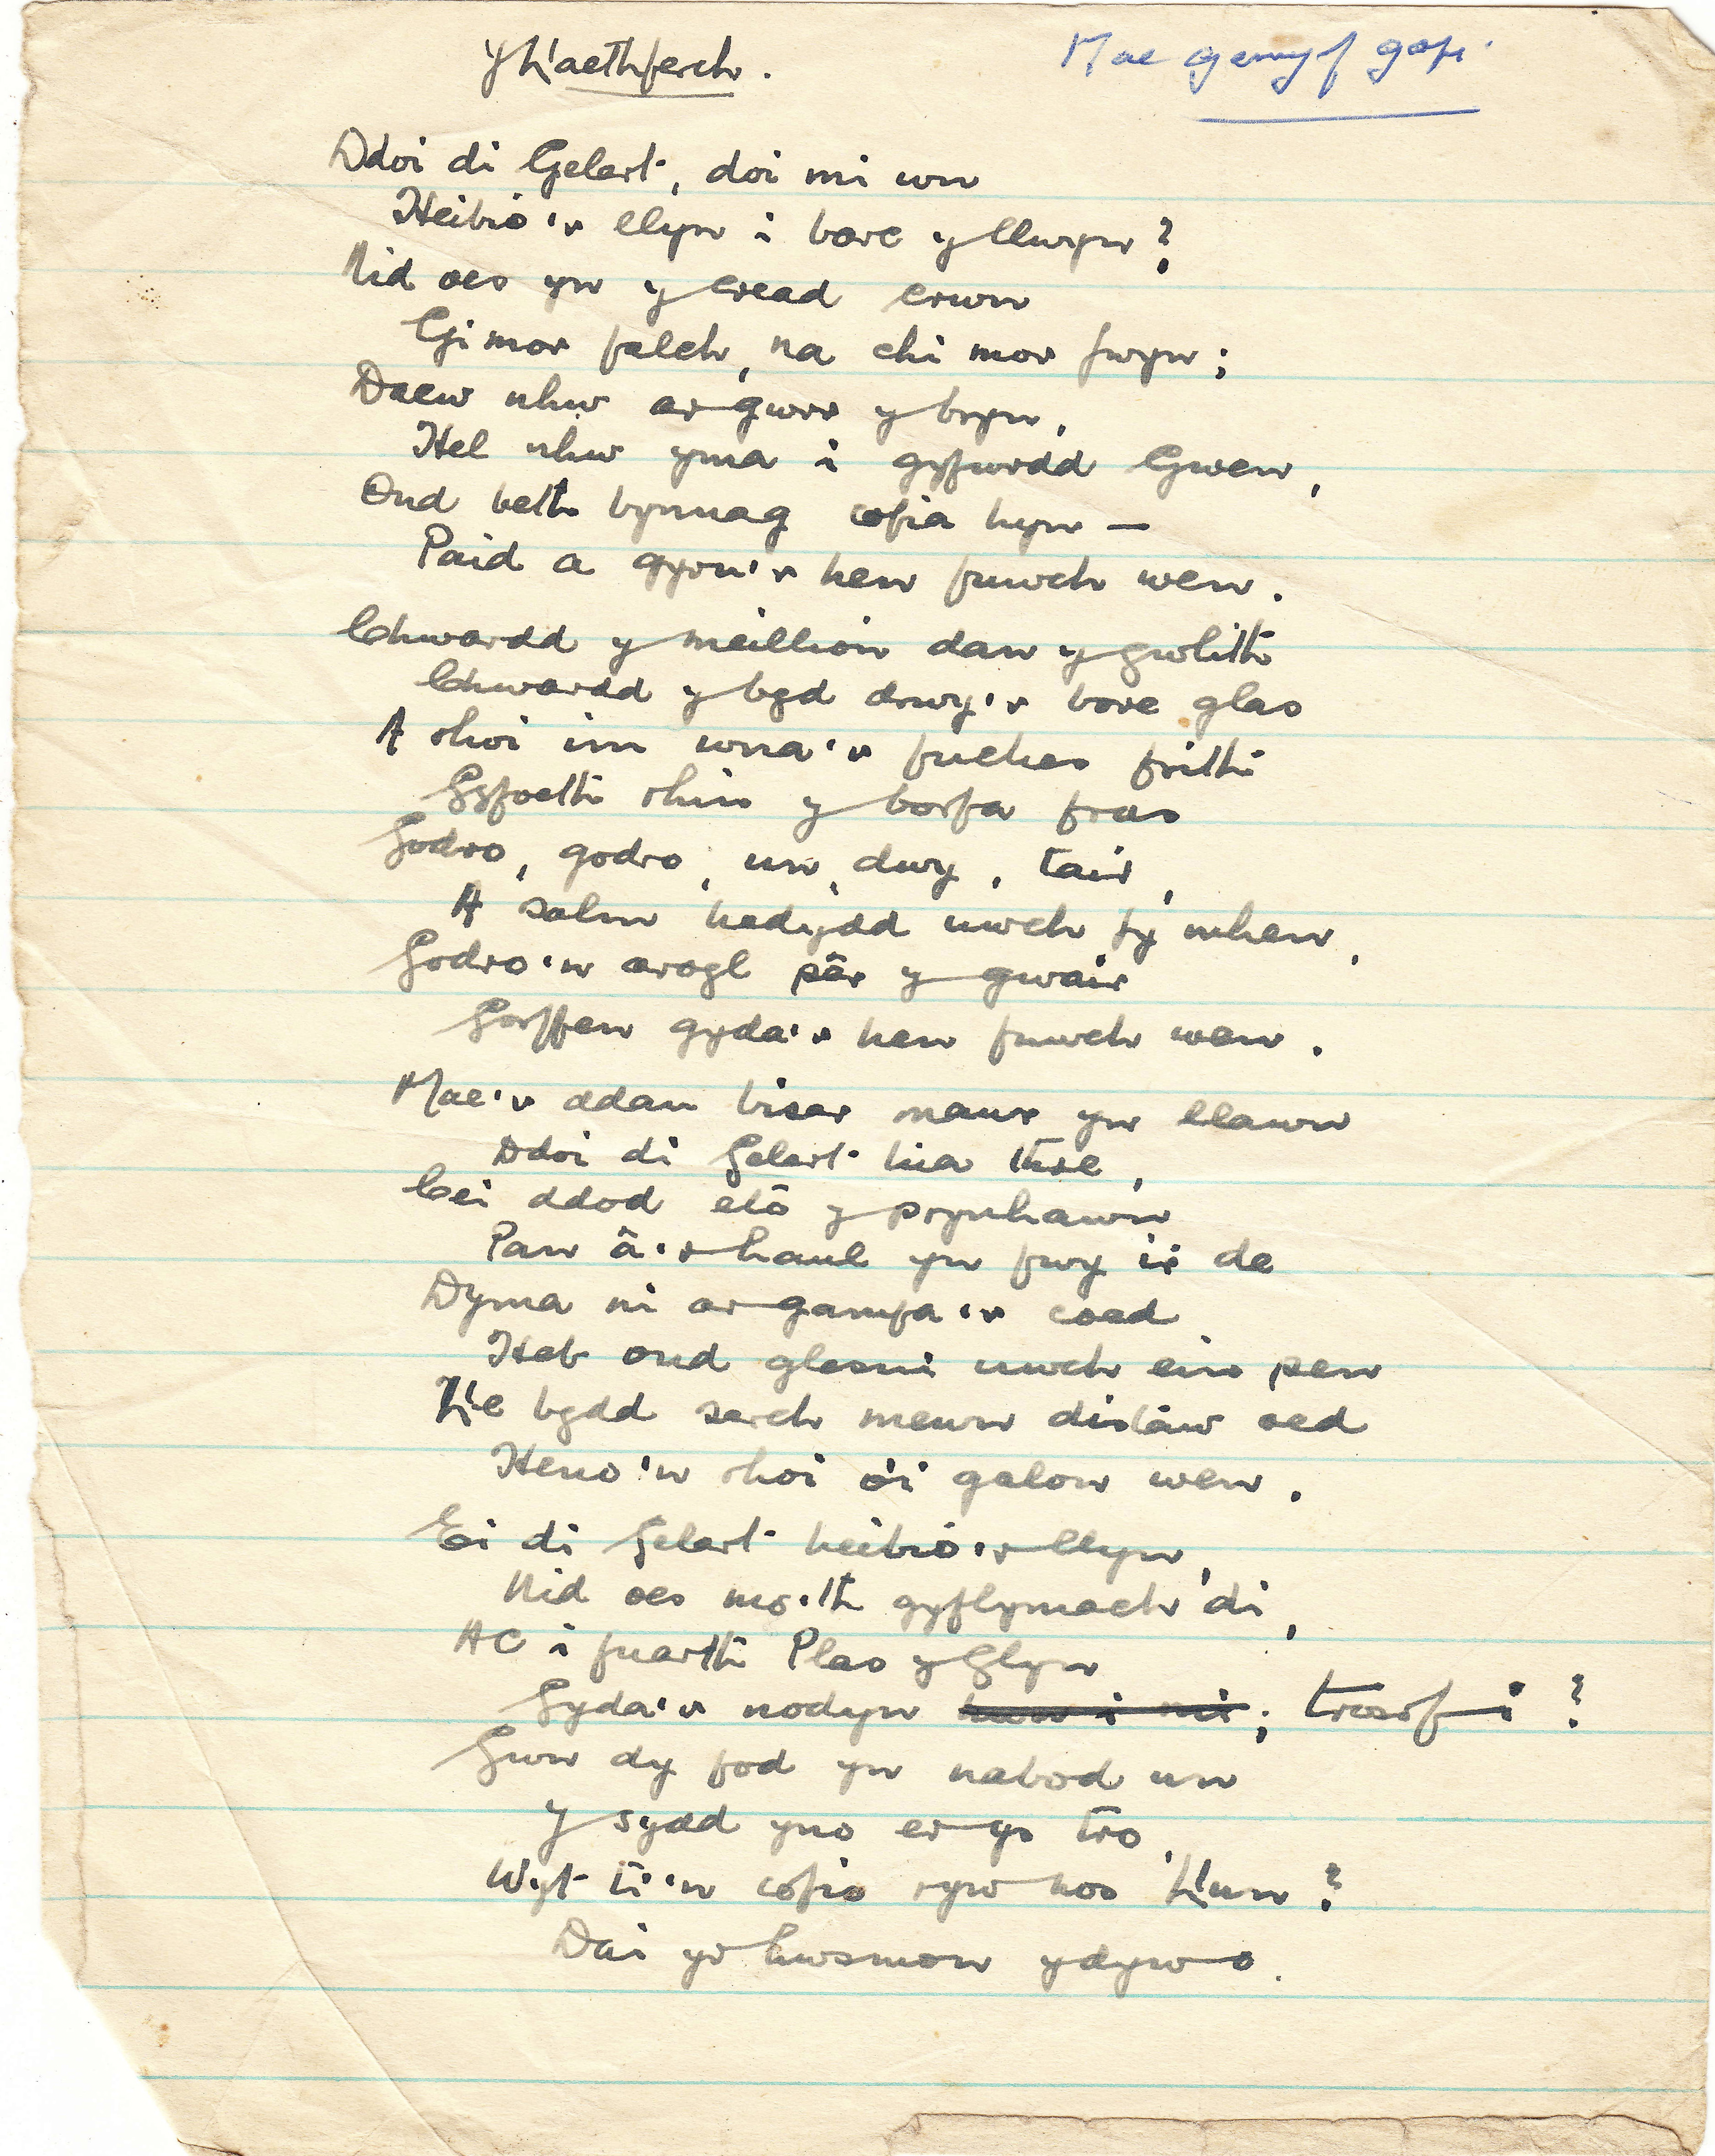 Y Llaethferch.
Mae gennyf gopi.
Ddoi di Gelert, doi mi wn
Heibio'r llyn i bore y llwyn?
Nid oes yn y cread crwn
Gi mor falch, na chi mor fwyn;
Daew nhw ar gwrr y bryn,
Hel nhw yma i gyfwrdd Gwen,
Ond beth bynnag cofia hyn —
Paid a gyrru'r hen fuwch wen.
Chwardd y meillion dan y gwlith
Chwardd y byd drwy'r bore glas
A rhoi im wna'r fuches frith
Gyfoeth rhin y borfa fras
Godro, godro, un, dwy, tair,
A salm hedydd uwch fy mhen,
Godro'n arogl pêr y gwair
Gorffen gyda'r hen fuwch wen.
Mae'r ddau biser mawr yn llawn
Ddoi di Gelert tua thre,
Cei ddod eto y prynhawn
Pan â'r haul yn fwy i'r de
Dyma ni ar gamfa'r coed
Heb ond glesni uwch ein pen
Lle bydd serch mewn distaw oed
Heno'n rhoi o'i galon wen.
Ei di Gelert heibio'r llyn,
Nid oes mo'th gyflymach di,
AC i fuarth Plas y Glyn
Gyda'r nodyn hwn i mi; trosof i?
Gwn dy fod yn nabod un
Y sydd yno er ys tro,
Wyt ti'n cofio ryw nos Llun?
Dai yr hwsmon ydyw o.